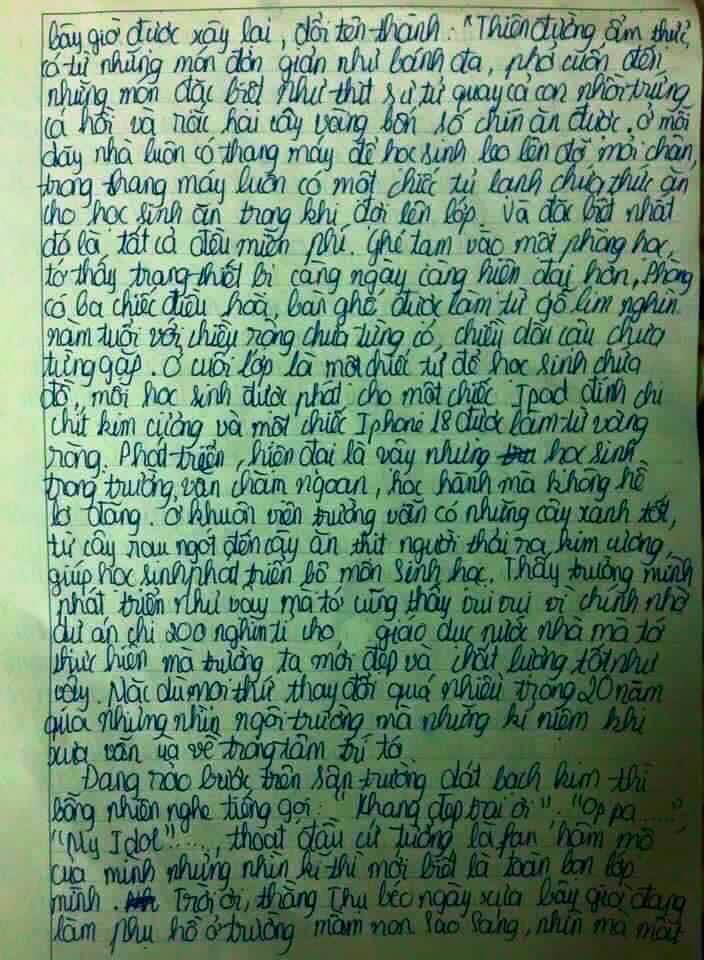 bây giờ được xây lại, đổi tên thành: "Thiên đường ẩm thực",
có từ những món đơn giản như bánh đa, phở cuốn đến
những món đặc biệt như thịt sư tử quay cả con nhồi trứng
cá hồi và rắc hai cây vàng bốn số chín ăn được. Ở mỗi
dãy nhà luôn có thang máy để học sinh leo lên đỡ mỏi chân,
trong thang máy luôn có một chiếc tủ lạnh chứa thức ăn
cho học sinh ăn trong khi đợi lên lớp. Và đặc biệt nhất
đó là tất cả đều miễn phí. Ghé tạm vào một phòng học,
tớ thấy trang thiết bị càng ngày càng hiện đại hơn, Phòng
có ba chiếc điều hoà, bàn ghế được làm từ gỗ lim nghìn
năm tuổi với chiều rộng chưa từng có, chiều dài cầu chưa
từng gặp. Ở cuối lớp là một chiếc tủ để học sinh chứa
đồ, mỗi học sinh được phát cho một chiếc Ipad đính chi
chít kim cương và một chiếc Iphone 18 được làm từ vàng
ròng. Phát triển, hiện đại là vậy nhưng học sinh
trong trường vẫn chăm ngoan, học hành mà không hề
lơ đãng. Ở khuôn viên trường vẫn có những cây xanh tốt,
từ cây rau ngót đến cây ăn thịt người thải ra kim cương,
giúp học sinh phát triển bộ môn Sinh học. Thấy trường mình
phát triển như vậy mà tớ cũng thấy vui vui vì chính nhờ
dự án chi 200 nghìn tỉ cho giáo dục nước nhà mà tớ
thực hiện mà trường ta mới đẹp và chất lượng tốt như
vậy. Mặc dù mọi thứ thay đổi quá nhiều trong 20 năm
qua nhưng nhìn ngôi trường mà những kỉ niệm khi
xưa vẫn ùa về trong tâm trí tớ.
Đang rảo bước trên sân trường dát bạch kim thì
bỗng nhiên nghe tiếng gọi: "Khang đẹp trai ơi". "Oppa.....",
"My Idol"....., thoạt đầu cứ tưởng là fan hâm mộ
của mình nhưng nhìn kĩ thì mới biết là toàn bọn lớp
mình. Trời ơi, thằng Thụ béo ngày xưa bây giờ đang
làm phụ hồ ở trường mầm non Sao Sáng, nhìn mà